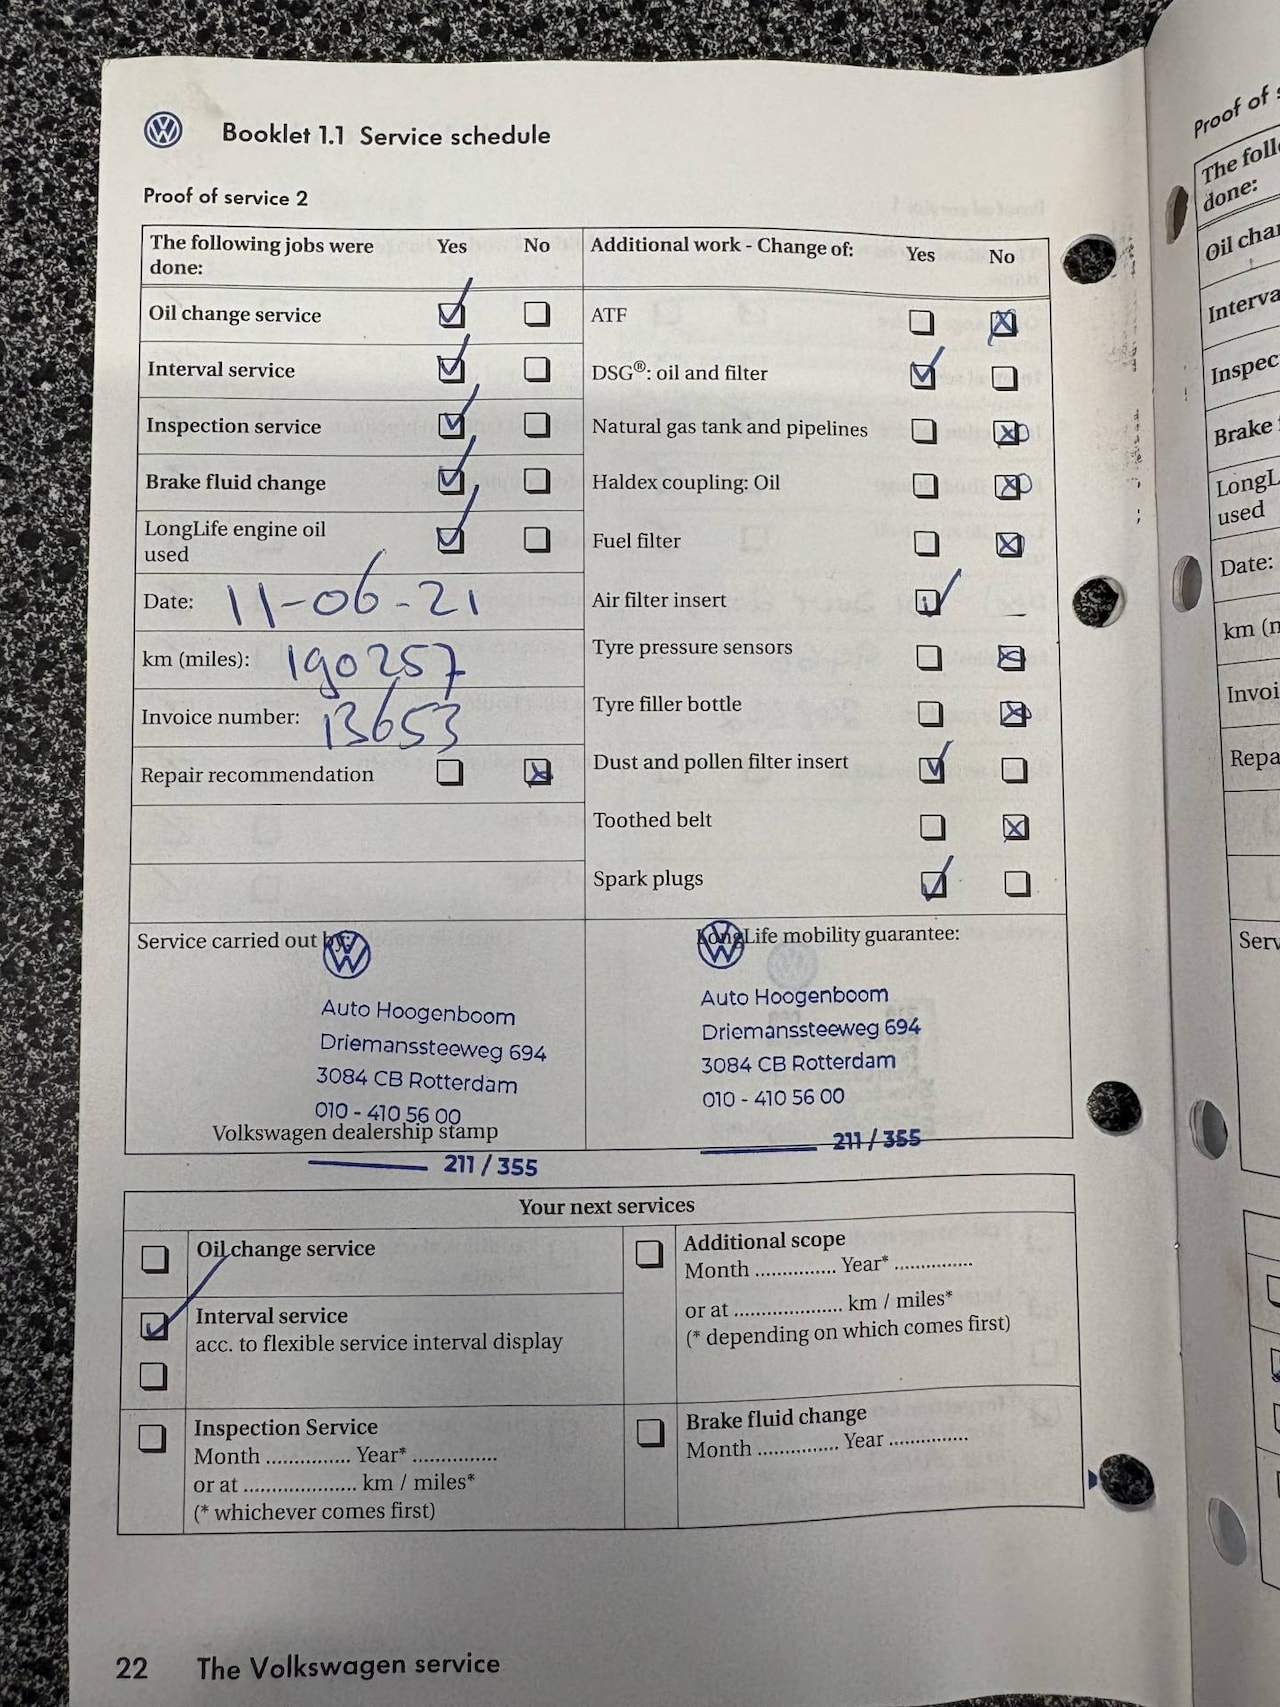 Booklet 1.1 Service schedule
Proof of service 2
The following jobs were done: Yes No
Oil change service
Interval service
Inspection service
Brake fluid change
LongLife engine oil used
Date: 11-06-21
km (miles): 190257
Invoice number: 13653
Repair recommendation
Additional work - Change of: Yes No
ATF
DSG®: oil and filter
Natural gas tank and pipelines
Haldex coupling: Oil
Fuel filter
Air filter insert
Tyre pressure sensors
Tyre filler bottle
Dust and pollen filter insert
Toothed belt
Spark plugs
Service carried out by:
Auto Hoogenboom
Driemanssteeweg 694
3084 CB Rotterdam
010 - 410 56 00
Volkswagen dealership stamp
211 / 355
LongLife mobility guarantee:
Auto Hoogenboom
Driemanssteeweg 694
3084 CB Rotterdam
010 - 410 56 00
211 / 355
Your next services
Oil change service
Interval service
acc. to flexible service interval display
Inspection Service
Month .............. Year* ..............
or at ................... km / miles*
(* whichever comes first)
Additional scope
Month .............. Year* ..............
or at ................... km / miles*
(* depending on which comes first)
Brake fluid change
Month .............. Year ..............
22 The Volkswagen service
Proof of
The
done:
Oil
Brake
used
Date:
km